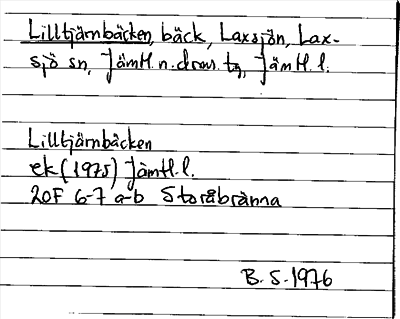 Lilltjärnbäcken, bäck, Laxsjön, Lax-
sjö sn, Jämtl. n. doms. tg, Jämtl. l.
Lilltjärnbäcken
ek (1975) Jämtl. l.
20F 6-7 a-b Storåbränna
B. S. 1976